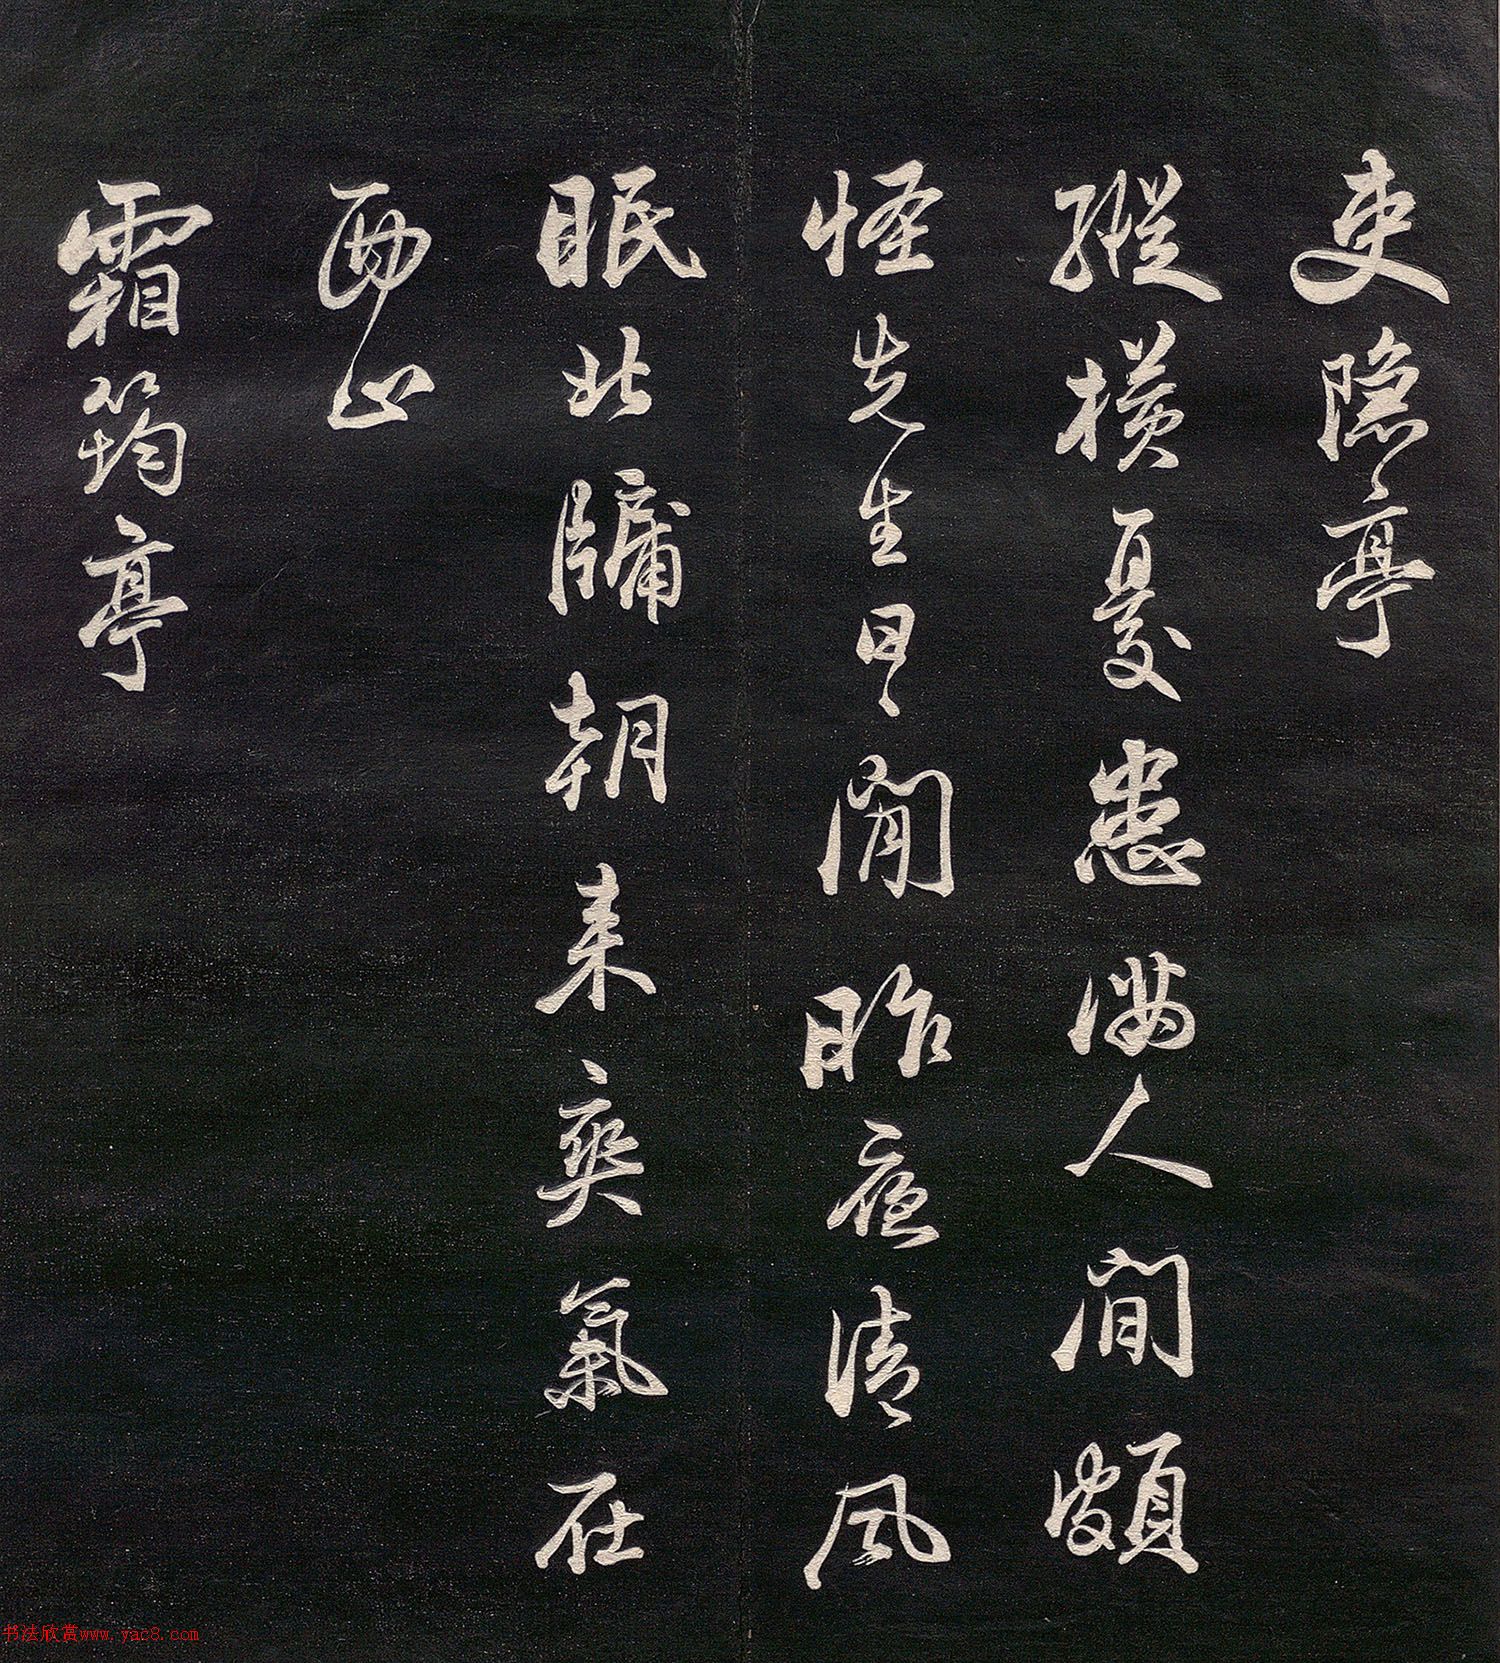 吏隱亭
縱橫憂患滿人間頗
怪先生日日閒昨夜清風
眠北牖朝來爽氣在
西山
霜筠亭
书法欣赏www.yac8.com